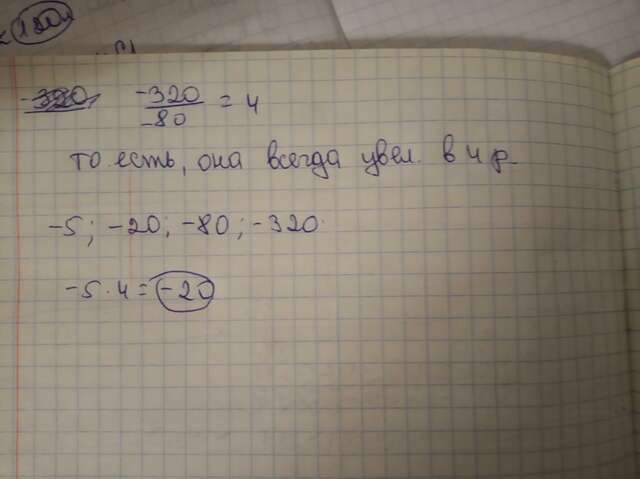 -320 / -80 = 4
то есть, она всегда увел. в 4 р.
-5; -20; -80; -320
-5 · 4 = -20